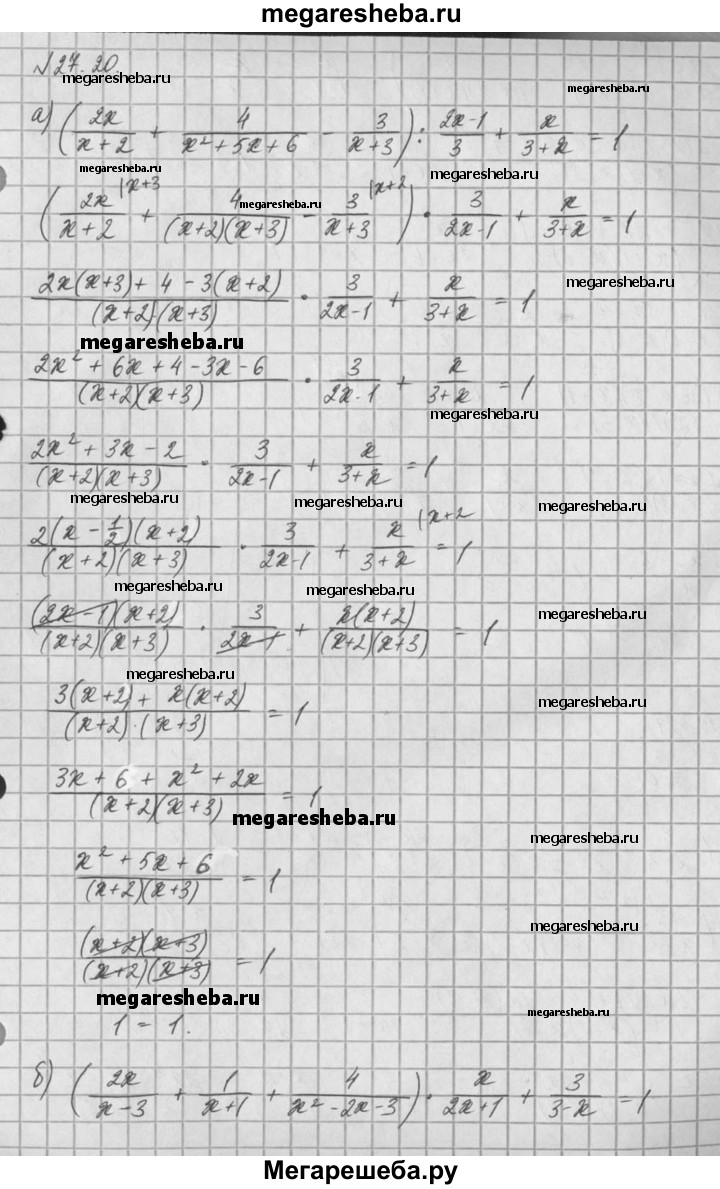 megaresheba.ru
№27.20
megaresheba.ru megaresheba.ru
а) (2x/(x+2) + 4/(x²+5x+6) - 3/(x+3)) : (2x-1)/3 + x/(3+x) = 1
megaresheba.ru megaresheba.ru
(2x/(x+2) |x+3 + 4/((x+2)(x+3)) - 3/(x+3) |x+2) · 3/(2x-1) + x/(3+x) = 1
megaresheba.ru
(2x(x+3) + 4 - 3(x+2))/((x+2)(x+3)) · 3/(2x-1) + x/(3+x) = 1
megaresheba.ru
megaresheba.ru
(2x² + 6x + 4 - 3x - 6)/((x+2)(x+3)) · 3/(2x-1) + x/(3+x) = 1
megaresheba.ru
(2x² + 3x - 2)/((x+2)(x+3)) · 3/(2x-1) + x/(3+x) = 1
megaresheba.ru megaresheba.ru megaresheba.ru
2(x - 1/2)(x+2)/((x+2)(x+3)) · 3/(2x-1) + x/(3+x) |x+2 = 1
megaresheba.ru megaresheba.ru
(2x-1)(x+2)/((x+2)(x+3)) · 3/(2x-1) + x(x+2)/((x+2)(x+3)) = 1
megaresheba.ru
megaresheba.ru
(3(x+2) + x(x+2))/((x+2)·(x+3)) = 1
megaresheba.ru
(3x + 6 + x² + 2x)/((x+2)(x+3)) = 1
megaresheba.ru
megaresheba.ru
(x² + 5x + 6)/((x+2)(x+3)) = 1
megaresheba.ru
(x+2)(x+3)/((x+2)(x+3)) = 1
megaresheba.ru
megaresheba.ru
1 = 1.
б) (2x/(x-3) + 1/(x+1) + 4/(x²-2x-3)) · x/(2x+1) + 3/(3-x) = 1
Мегарешеба.ру